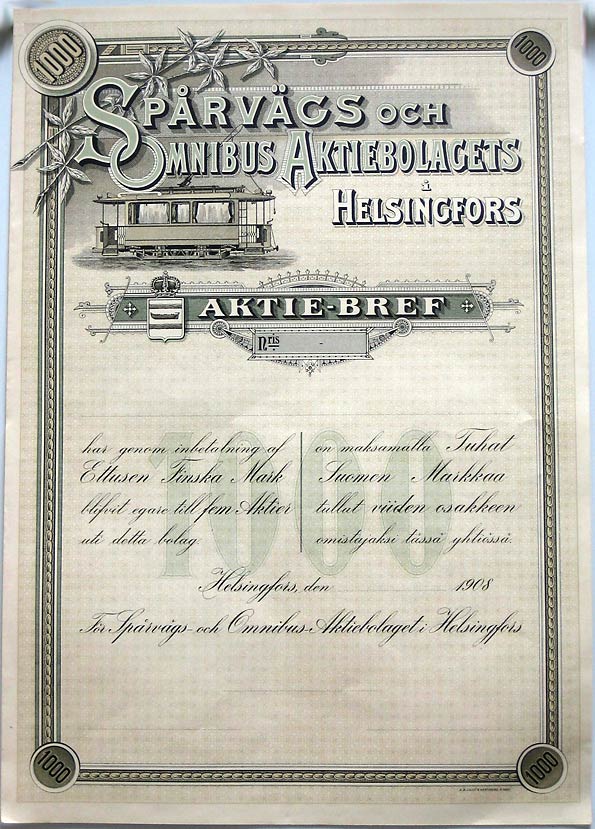 1000
1000
SPÅRVÄGS OCH
OMNIBUS AKTIEBOLAGETS
i
HELSINGFORS
AKTIE-BREF
Nris -
1000
har genom inbetalning af
Ettusen Finska Mark
blifvit egare till fem Aktier
uti detta bolag.
on maksamalla Tuhat
Suomen Markkaa
tullut viiden osakkeen
omistajaksi tässä yhtiössä.
Helsingfors, den 1908
För Spårvägs- och Omnibus-Aktiebolaget i Helsingfors
1000
1000